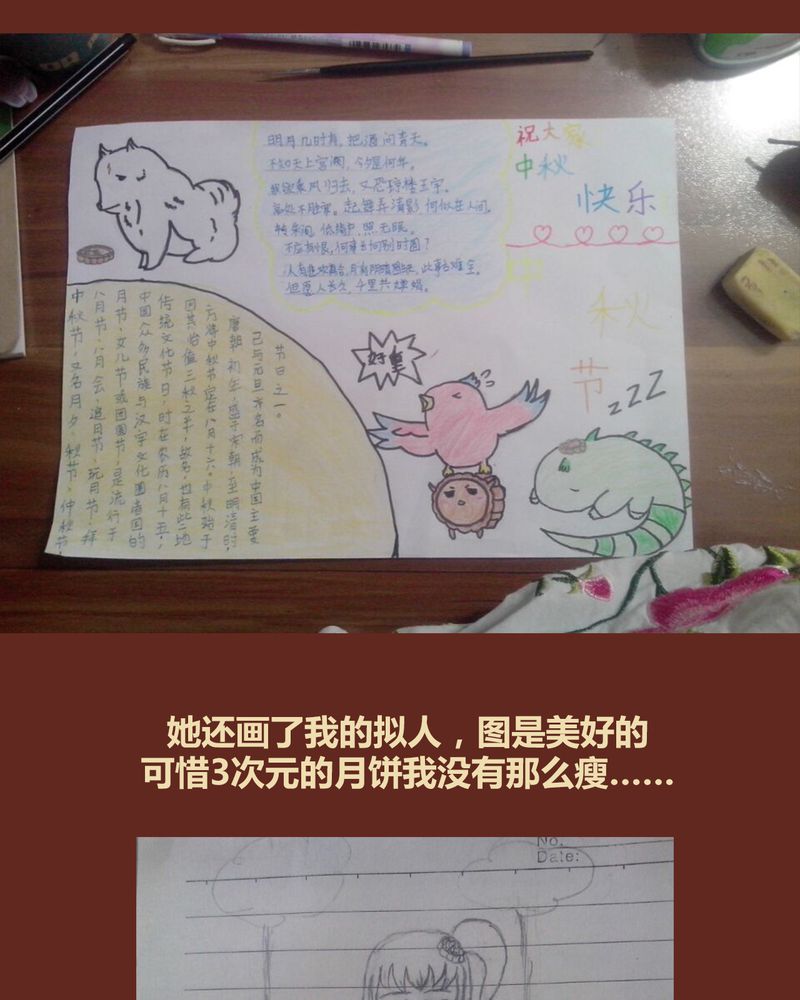 明月几时有,把酒问青天。
不知天上宫阙,今夕是何年。
我欲乘风归去,又恐琼楼玉宇。
高处不胜寒。起舞弄清影,何似在人间。
转朱阁,低绮户,照无眠。
不应有恨,何事长向别时圆?
人有悲欢离合,月有阴晴圆缺,此事古难全。
但愿人长久,千里共婵娟。
祝大家
中秋
快乐
中
秋
节
中秋节,又名月夕、秋节、仲秋节、
八月节、八月会、追月节、玩月节、拜
月节、女儿节或团圆节,是流行于
中国众多民族与汉字文化圈诸国的
传统文化节日,时在农历八月十五;
因其恰值三秋之半,故名,也有些地
方将中秋节定在八月十六。中秋始于
唐朝初年,盛于宋朝,至明清时,
已与元旦齐名而成为中国主要
节日之一。
好重
ZZZ
她还画了我的拟人，图是美好的
可惜3次元的月饼我没有那么瘦……
No.
Date: